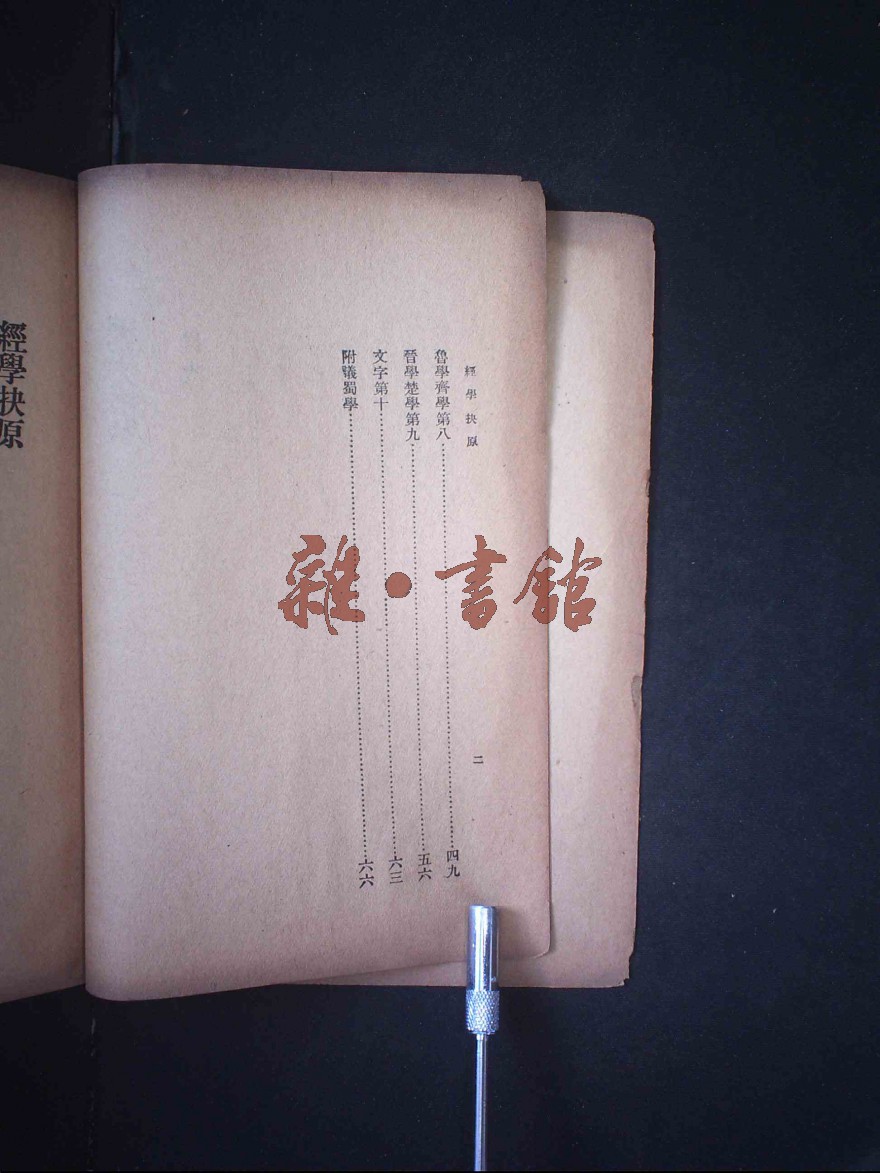 經學抉原
二
魯學齊學第八……四九
晉學楚學第九……五六
文字第十……六三
附議蜀學……六六
經學抉原
雜·書館